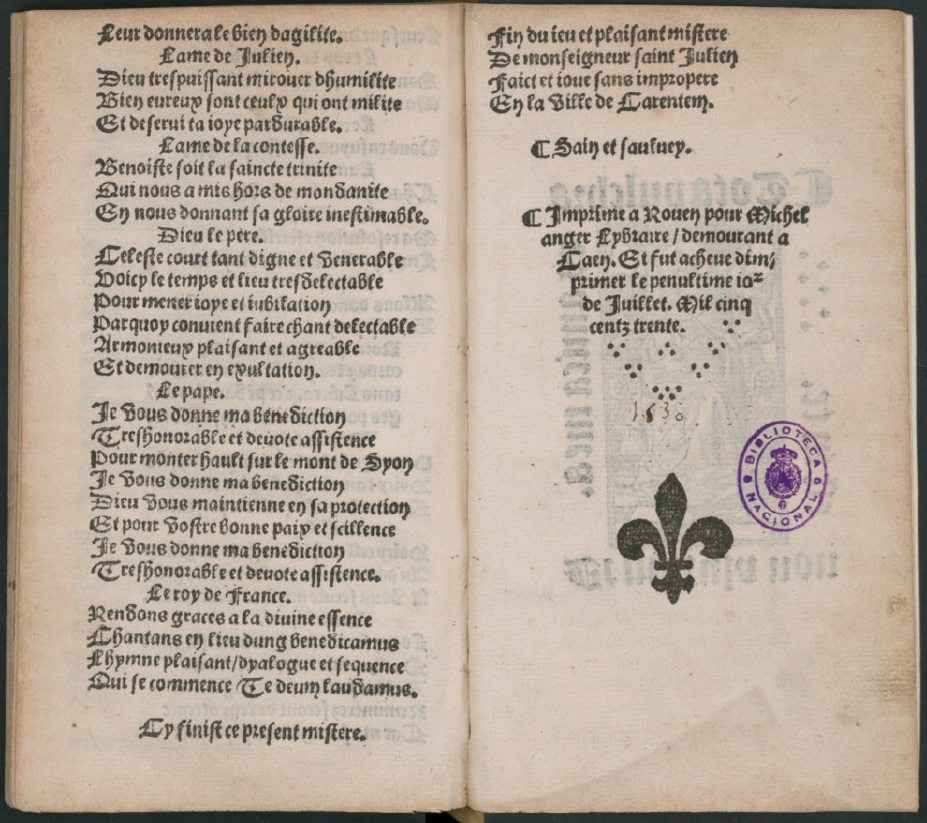 Leur donnera le bien dagilite.
Lame de Julien.
Dieu trespuissant mirouer dhumilite
Bien eureux sont ceulx qui ont milite
Et deserui ta ioye pardurable.
Lame de la contesse.
Benoiste soit la saincte trinite
Qui nous a mis hors de mondanite
En nous donnant sa gloire inestimable.
Dieu le pere.
Celeste court tant digne et venerable
Voicy le temps et lieu tresdelectable
Pour mener ioye et iubilation
Parquoy conuient faire chant delectable
Armonieux plaisant et agreable
Et demourer en exultation.
Le pape.
Je vous donne ma benediction
Treshonorable et deuote assistence
Pour monter hault sur le mont de Syon
Je vous donne ma benediction
Dieu vous maintienne en sa protection
Et pour vostre bonne paix et scillence
Je vous donne ma benediction
Treshonorable et deuote assistence.
Le roy de France.
Rendons graces a la diuine essence
Chantans en lieu dung benedicamus
Lhymne plaisant/dyalogue et sequence
Qui se commence Te deum laudamus.
Cy finist ce present mistere.
Fin du ieu et plaisant mistere
De monseigneur saint Julien
Faict et ioue sans impropere
En la ville de Carenten.
¶ Sain et sauluey.
¶ Imprime a Rouen pour Michel
anger Lybraire / demourant a
Caen. Et fut acheue dim/
primer le penultime io²
de Juillet. Mil cinq
centz trente.
1530
BIBLIOTECA
NACIONAL